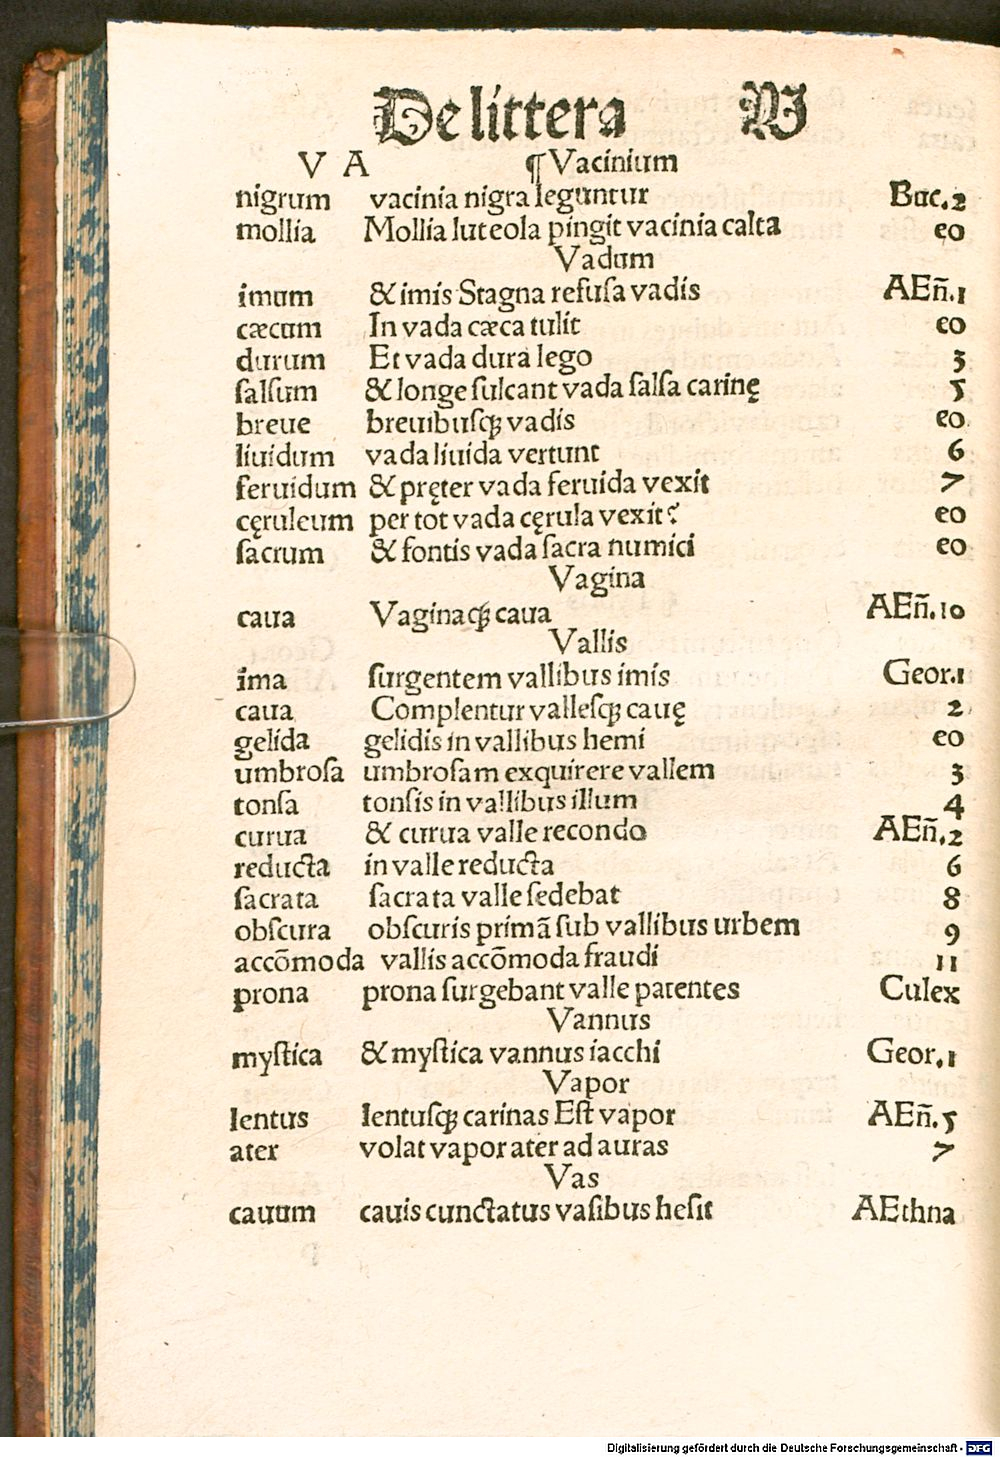 De littera V
V A ¶Vacinium
nigrum vacinia nigra leguntur Buc.2
mollia Mollia luteola pingit vacinia calta eo
Vadum
imum & imis Stagna refuſa vadis AEñ.1
cæcum In vada cæca tulit eo
durum Et vada dura lego 3
ſalſum & longe ſulcant vada ſalſa carinę 5
breue breuibuſqꝫ vadis eo
liuidum vada liuida vertunt 6
feruidum & pręter vada feruida vexit 7
cęruleum per tot vada cęrula vexit? eo
ſacrum & fontis vada ſacra numici eo
Vagina
caua Vaginaqꝫ caua AEñ.10
Vallis
ima ſurgentem vallibus imis Geor.1
caua Complentur valleſqꝫ cauę 2
gelida gelidis in vallibus hemi eo
umbroſa umbroſam exquirere vallem 3
tonſa tonſis in vallibus illum 4
curua & curua valle recondo AEñ.2
reducta in valle reducta 6
ſacrata ſacrata valle ſedebat 8
obſcura obſcuris primã ſub vallibus urbem 9
accõmoda vallis accõmoda fraudi 11
prona prona ſurgebant valle patentes Culex
Vannus
myſtica & myſtica vannus iacchi Geor.1
Vapor
lentus lentuſqꝫ carinas Eſt vapor AEñ.5
ater volat vapor ater ad auras 7
Vas
cauum cauis cunctatus vaſibus heſit AEthna
Digitalisierung gefördert durch die Deutsche Forschungsgemeinschaft - DFG